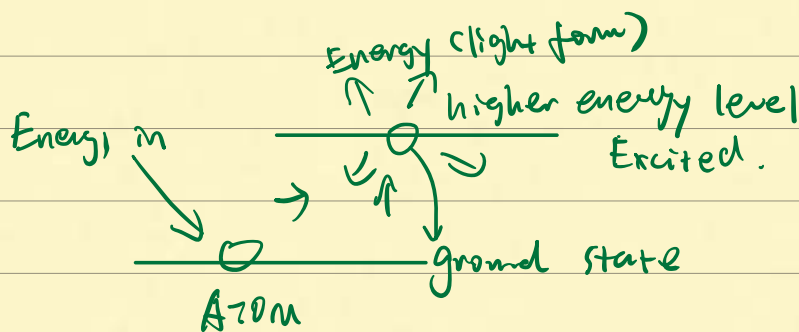 Energy (light form)
higher energy level
Energy in
Excited.
ground state
ATOM